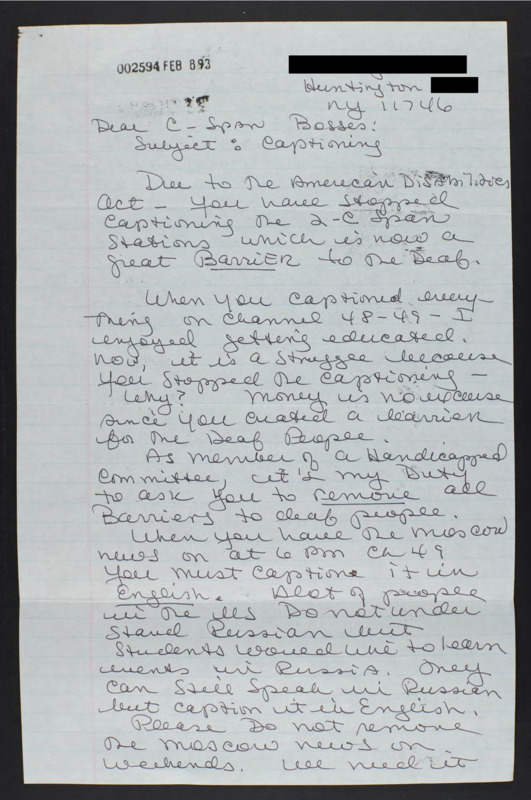 002594 FEB 893
Huntington
NY 11746
Dear C-Span Bosses:
Subject: Captioning
Due to the American Disabilities
Act - you have stopped
captioning the 2-C Span
stations which is now a
great BarriER to the Deaf.
When you captioned every-
thing on channel 48-49 - I
enjoyed getting educated.
Now, it is a struggle because
you stopped the captioning -
why? Money is no excuse
since you created a barrier
for the Deaf People.
As member of a Handicapped
Committee, it's my Duty
to ask you to remove all
Barriers to deaf people.
When you have the Moscow
news on at 6 PM Ch 49
you must caption it in
English. Alot of people
in the US Do not under
stand Russian but
students would like to learn
events in Russia. They
can still speak in Russian
but caption it in English.
Please Do not remove
the Moscow news on
weekends. We need it